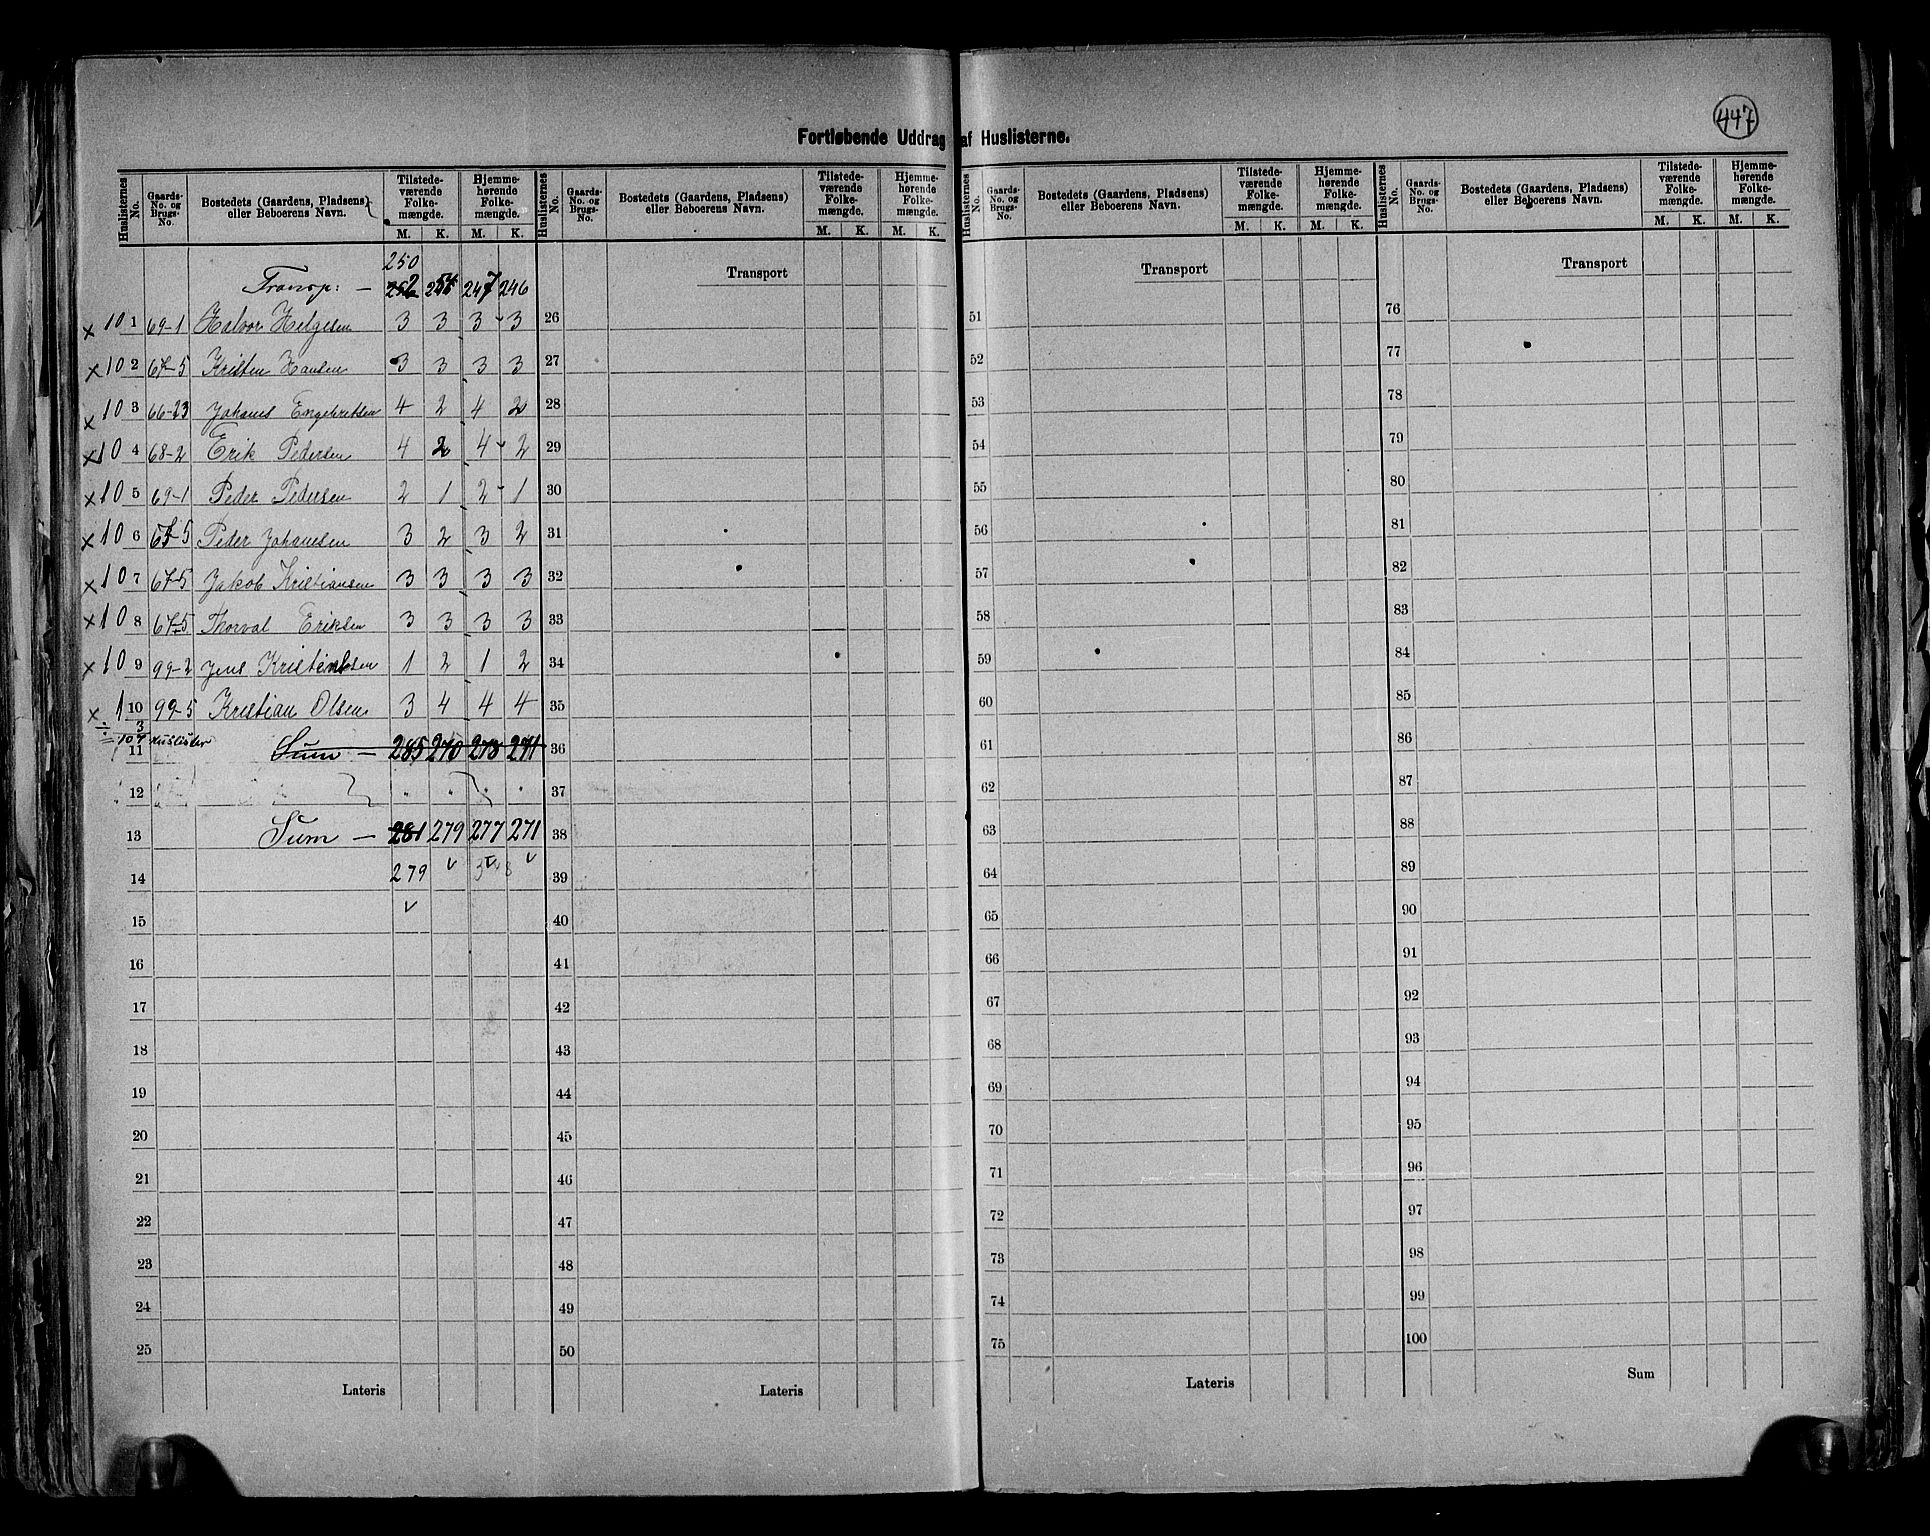 447
Fortløbende Uddrag af Huslisterne.
Huslisternes No. | Gaards-No. og Brugs-No. | Bostedets (Gaardens, Pladsens) eller Beboerens Navn. | Tilstedeværende Folkemængde. M. K. | Hjemmehørende Folkemængde. M. K.
Huslisternes No. | Gaards-No. og Brugs-No. | Bostedets (Gaardens, Pladsens) eller Beboerens Navn. | Tilstedeværende Folkemængde. M. K. | Hjemmehørende Folkemængde. M. K.
Huslisternes No. | Gaards-No. og Brugs-No. | Bostedets (Gaardens, Pladsens) eller Beboerens Navn. | Tilstedeværende Folkemængde. M. K. | Hjemmehørende Folkemængde. M. K.
Huslisternes No. | Gaards-No. og Brugs-No. | Bostedets (Gaardens, Pladsens) eller Beboerens Navn. | Tilstedeværende Folkemængde. M. K. | Hjemmehørende Folkemængde. M. K.
250
Transp: — 247 246
x 10 1 69-1 Halvor Helgesen 3 3 3 3
x 10 2 67-5 Kristen Hansen 3 3 3 3
x 10 3 66-23 Johanes Engebretsen 4 2 4 2
x 10 4 68-2 Erik Pedersen 4 2 4 2
x 10 5 69-1 Peder Pedersen 2 1 2 1
x 10 6 Peder Johanesen 3 2 3 2
x 10 7 67-5 Jakob Kristiansen 3 3 3 3
x 10 8 67-5 Thorval Eriksen 3 3 3 3
x 10 9 99-2 Jens 1 2 1 2
x 1 10 99-5 Kristian Olsen 3 4 4 4
÷ 3
= 107 Huslister
11 Sum — 285 270 278 271
12
13 Sum — 281 279 277 271
14 279
15
16
17
18
19
20
21
22
23
24
25
Lateris
Transport
26
27
28
29
30
31
32
33
34
35
36
37
38
39
40
41
42
43
44
45
46
47
48
49
50
Lateris
Transport
51
52
53
54
55
56
57
58
59
60
61
62
63
64
65
66
67
68
69
70
71
72
73
74
75
Lateris
Transport
76
77
78
79
80
81
82
83
84
85
86
87
88
89
90
91
92
93
94
95
96
97
98
99
100
Sum